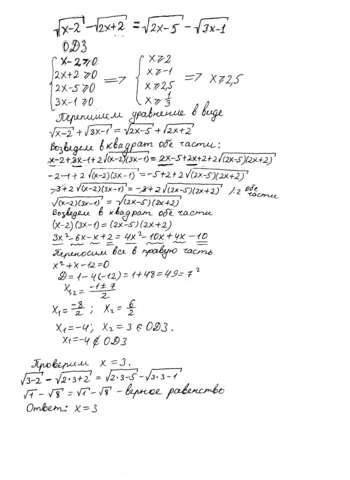 √x-2 - √2x+2 = √2x-5 - √3x-1
ОДЗ
{x-2≥0 {x≥2
2x+2≥0 x≥-1
2x-5≥0 => x≥2,5 => x≥2,5
3x-1≥0 x≥1/3
Перепишем уравнение в виде
√x-2 + √3x-1 = √2x-5 + √2x+2
Возведем в квадрат обе части:
x-2+3x-1+2√(x-2)(3x-1) = 2x-5+2x+2+2√(2x-5)(2x+2)
-2-1+2√(x-2)(3x-1) = -5+2+2√(2x-5)(2x+2)
-3+2√(x-2)(3x-1) = -3+2√(2x-5)(2x+2) /:2 обе части
√(x-2)(3x-1) = √(2x-5)(2x+2)
Возведем в квадрат обе части
(x-2)(3x-1) = (2x-5)(2x+2)
3x²-6x-x+2 = 4x²-10x+4x-10
Переносим все в правую часть
x²+x-12=0
D=1-4(-12)=1+48=49=7²
x₁,₂ = -1±7/2
x₁=-8/2; x₂=6/2
x₁=-4; x₂=3 ∈ ОДЗ.
x₁=-4 ∉ ОДЗ
Проверим x=3.
√3-2 - √2·3+2 = √2·3-5 - √3·3-1
√1 - √8 = √1 - √8 - верное равенство
Ответ: x=3